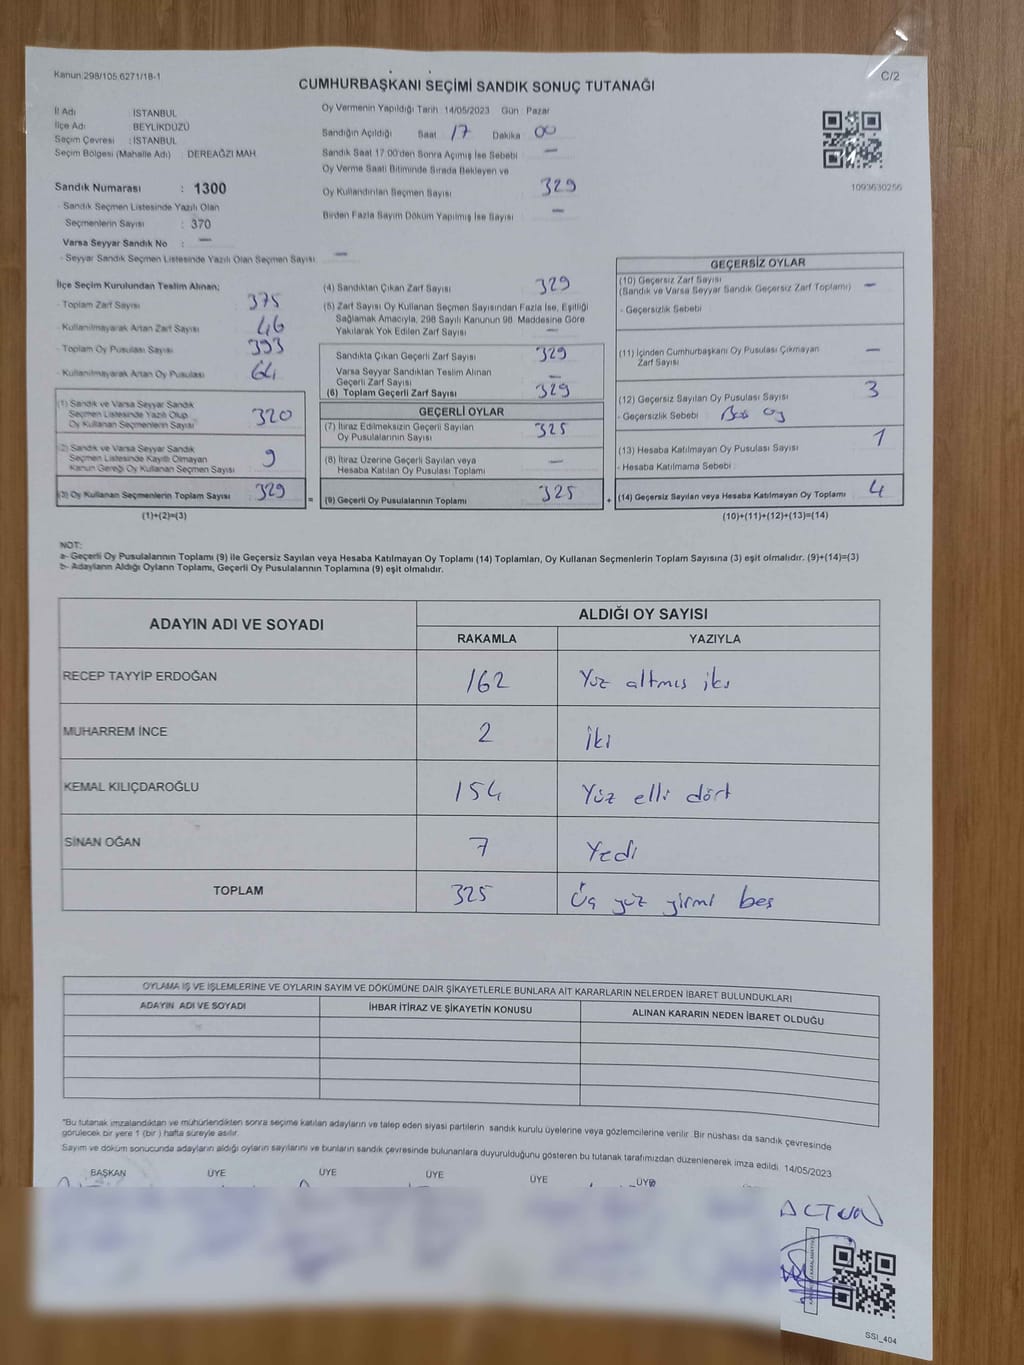 Kanun:298/105,6271/18-1
C/2
CUMHURBAŞKANI SEÇİMİ SANDIK SONUÇ TUTANAĞI
İl Adı : İSTANBUL
İlçe Adı : BEYLİKDÜZÜ
Seçim Çevresi : İSTANBUL
Seçim Bölgesi (Mahalle Adı) : DEREAĞZI MAH.
Sandık Numarası : 1300
- Sandık Seçmen Listesinde Yazılı Olan
Seçmenlerin Sayısı : 370
Varsa Seyyar Sandık No : —
- Seyyar Sandık Seçmen Listesinde Yazılı Olan Seçmen Sayısı: —
Oy Vermenin Yapıldığı Tarih 14/05/2023 Gün Pazar
Sandığın Açıldığı Saat 17 Dakika 00
Sandık Saat 17:00'den Sonra Açılmış İse Sebebi —
Oy Verme Saati Bitiminde Sırada Bekleyen ve
Oy Kullandırılan Seçmen Sayısı 329
Birden Fazla Sayım Döküm Yapılmış İse Sayısı —
1093630256
İlçe Seçim Kurulundan Teslim Alınan;
- Toplam Zarf Sayısı 375
- Kullanılmayarak Artan Zarf Sayısı 46
- Toplam Oy Pusulası Sayısı 393
- Kullanılmayarak Artan Oy Pusulası 64
(1) Sandık ve Varsa Seyyar Sandık
Seçmen Listesinde Yazılı Olup
Oy Kullanan Seçmenlerin Sayısı 320
(2) Sandık ve Varsa Seyyar Sandık
Seçmen Listesinde Kayıtlı Olmayan
Kanun Gereği Oy Kullanan Seçmen Sayısı 9
(3) Oy Kullanan Seçmenlerin Toplam Sayısı 329
(1)+(2)=(3)
(4) Sandıktan Çıkan Zarf Sayısı 329
(5) Zarf Sayısı Oy Kullanan Seçmen Sayısından Fazla İse, Eşitliği
Sağlamak Amacıyla, 298 Sayılı Kanunun 98. Maddesine Göre
Yakılarak Yok Edilen Zarf Sayısı —
Sandıkta Çıkan Geçerli Zarf Sayısı 329
Varsa Seyyar Sandıktan Teslim Alınan
Geçerli Zarf Sayısı —
(6) Toplam Geçerli Zarf Sayısı 329
GEÇERLİ OYLAR
(7) İtiraz Edilmeksizin Geçerli Sayılan
Oy Pusulalarının Sayısı 325
(8) İtiraz Üzerine Geçerli Sayılan veya
Hesaba Katılan Oy Pusulası Toplamı —
= (9) Geçerli Oy Pusulalarının Toplamı 325 +
GEÇERSİZ OYLAR
(10) Geçersiz Zarf Sayısı
(Sandık ve Varsa Seyyar Sandık Geçersiz Zarf Toplamı) —
- Geçersizlik Sebebi
(11) İçinden Cumhurbaşkanı Oy Pusulası Çıkmayan
Zarf Sayısı —
(12) Geçersiz Sayılan Oy Pusulası Sayısı 3
- Geçersizlik Sebebi Boş oy
(13) Hesaba Katılmayan Oy Pusulası Sayısı 1
- Hesaba Katılmama Sebebi
(14) Geçersiz Sayılan veya Hesaba Katılmayan Oy Toplamı 4
(10)+(11)+(12)+(13)=(14)
NOT:
a- Geçerli Oy Pusulalarının Toplamı (9) ile Geçersiz Sayılan veya Hesaba Katılmayan Oy Toplamı (14) Toplamları, Oy Kullanan Seçmenlerin Toplam Sayısına (3) eşit olmalıdır. (9)+(14)=(3)
b- Adayların Aldığı Oyların Toplamı, Geçerli Oy Pusulalarının Toplamına (9) eşit olmalıdır.
ADAYIN ADI VE SOYADI
ALDIĞI OY SAYISI
RAKAMLA YAZIYLA
RECEP TAYYİP ERDOĞAN 162 Yüz altmış iki
MUHARREM İNCE 2 İki
KEMAL KILIÇDAROĞLU 154 Yüz elli dört
SİNAN OĞAN 7 Yedi
TOPLAM 325 Üç yüz yirmi beş
OYLAMA İŞ VE İŞLEMLERİNE VE OYLARIN SAYIM VE DÖKÜMÜNE DAİR ŞİKAYETLERLE BUNLARA AİT KARARLARIN NELERDEN İBARET BULUNDUKLARI
ADAYIN ADI VE SOYADI İHBAR İTİRAZ VE ŞİKAYETİN KONUSU ALINAN KARARIN NEDEN İBARET OLDUĞU
"Bu tutanak imzalandıktan ve mühürlendikten sonra seçime katılan adayların ve talep eden siyasi partilerin sandık kurulu üyelerine veya gözlemcilerine verilir. Bir nüshası da sandık çevresinde
görülecek bir yere 1 (bir) hafta süreyle asılır.
Sayım ve döküm sonucunda adayların aldığı oyların sayılarını ve bunların sandık çevresinde bulunanlara duyurulduğunu gösteren bu tutanak tarafımızdan düzenlenerek imza edildi. 14/05/2023
BAŞKAN ÜYE ÜYE ÜYE ÜYE ÜYE
SSI_404